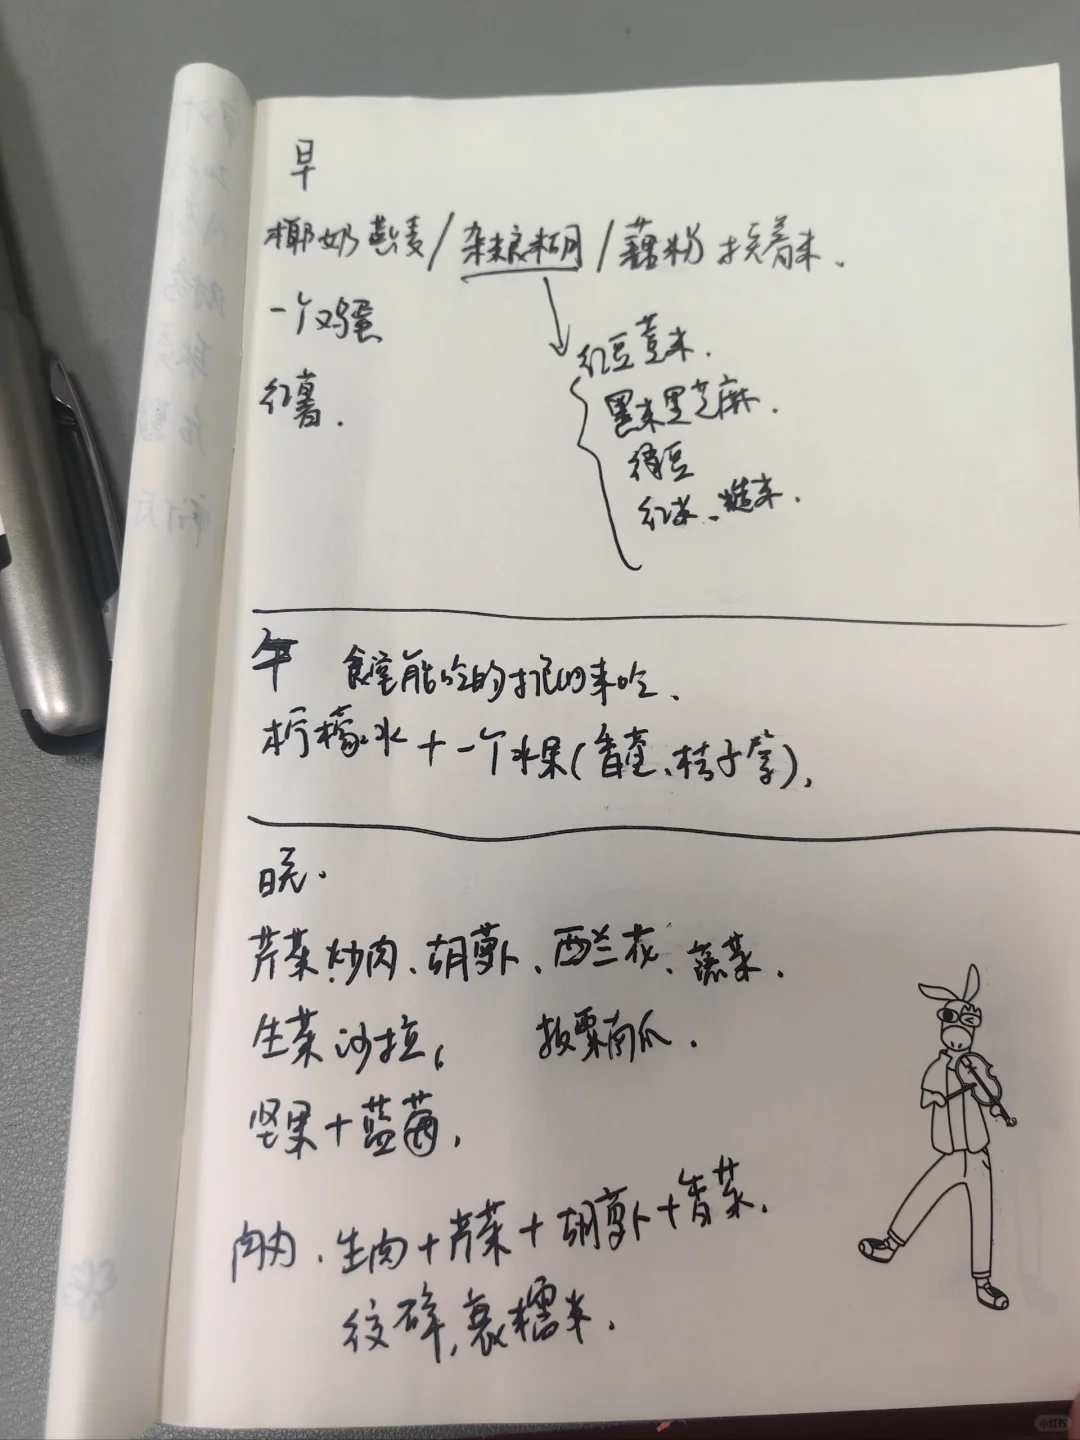 早
椰奶燕麦/杂粮糊/藕粉 换着来.
一个鸡蛋
红豆薏米.
红薯.
黑米黑芝麻.
绿豆
红米、糙米.
午 食堂能吃的挑出来吃、
柠檬水+一个水果(香蕉、桔子等),
晚.
芹菜炒肉、胡萝卜、西兰花、蔬菜.
生菜沙拉, 板栗南瓜.
坚果+蓝莓,
肉肉. 生肉+芹菜+胡萝卜+香菜.
绞碎,裹糯米.
小红书